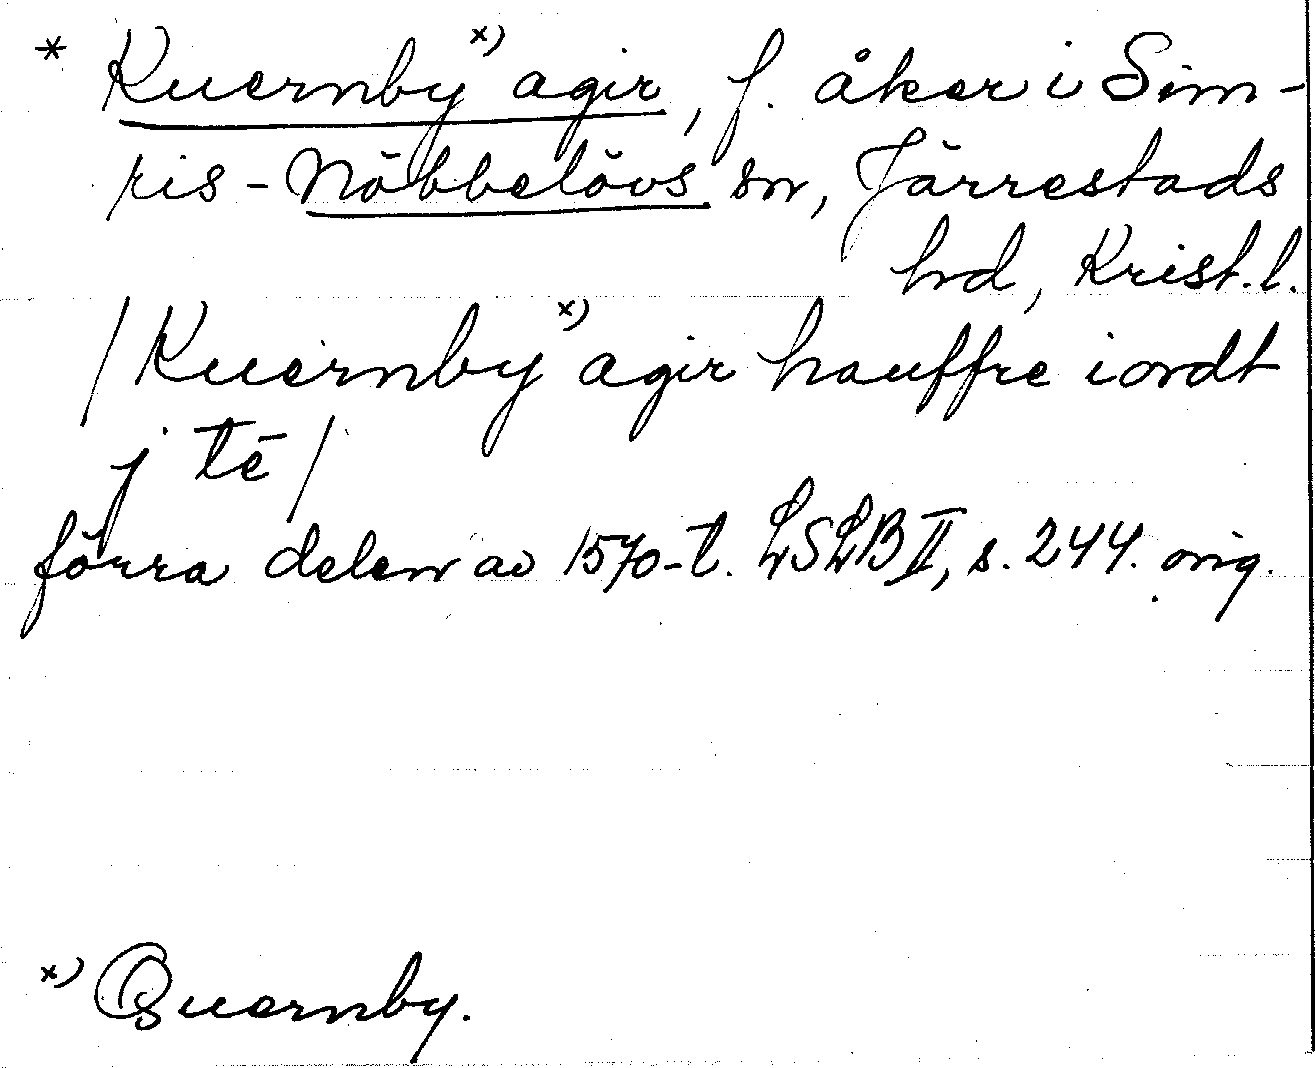 * Kuernby x) agir, f. åker i Sim-
ris-Nöbbelövs sn, Järrestads
hrd, Krist. l.
/ Kuernby x) agir hauffre iordt
j tē /
förra delen av 1570-t. LSLB II, s. 244. orig.
x) Quernby.